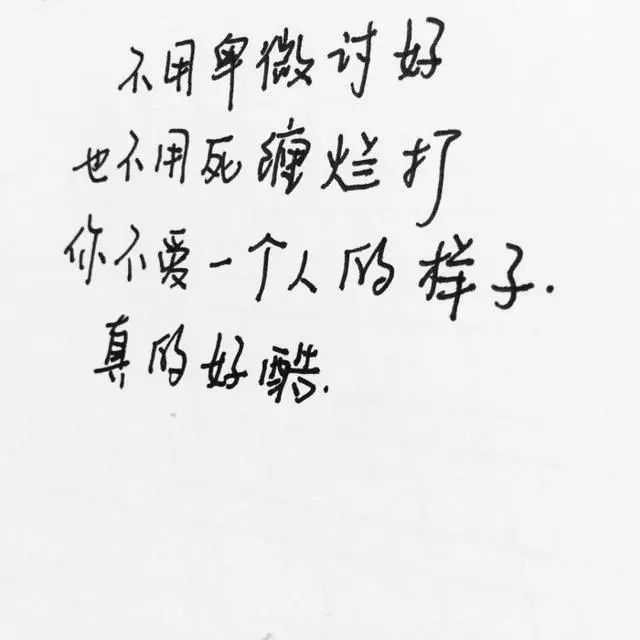 不用卑微讨好
也不用死缠烂打
你不爱一个人的样子.
真的好酷.